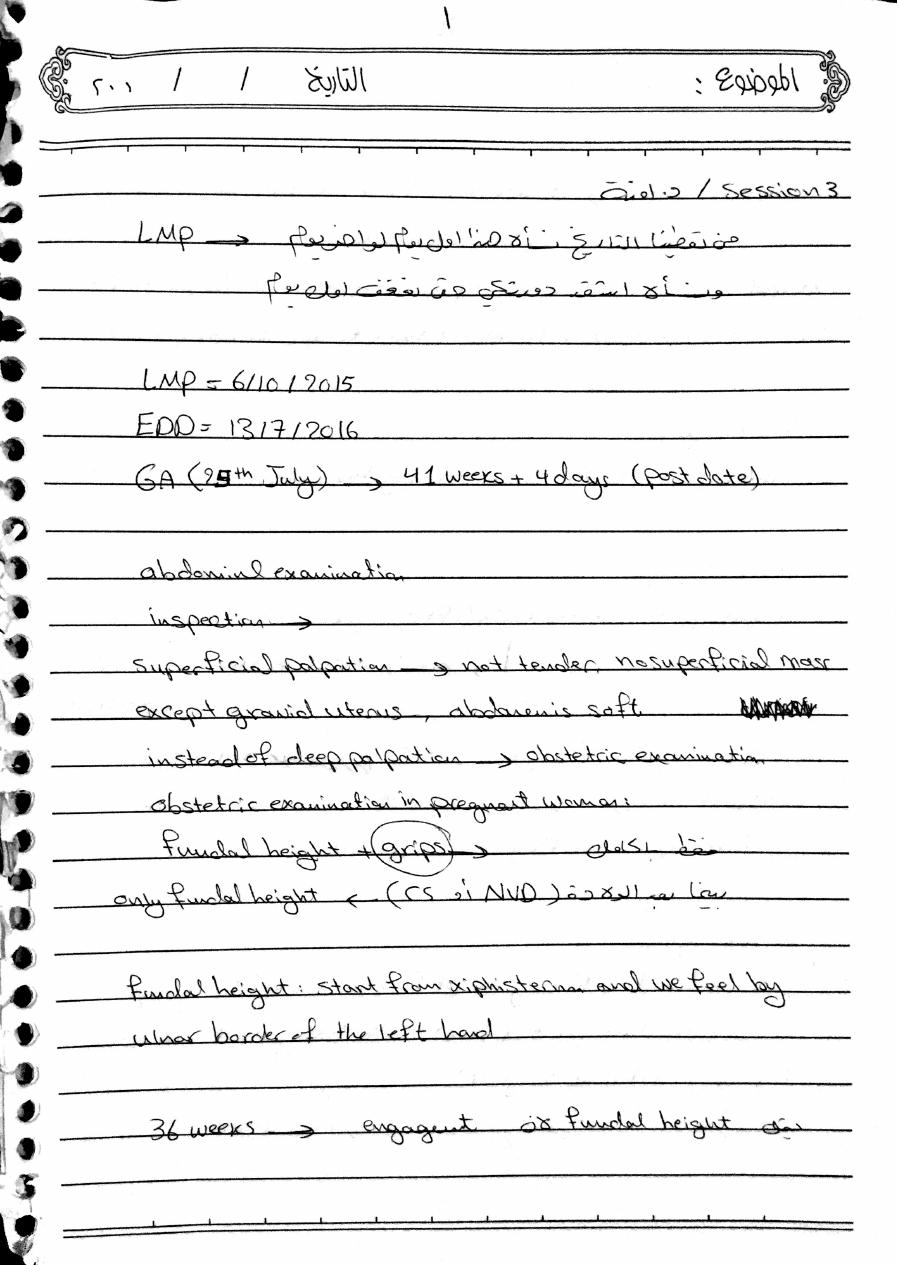 ١
الموضوع : التاريخ / / ٢٠٠١
د. امنة / Session 3
LMP → من تعطينا التاريخ نسألها هذا اول يوم لو اخر يوم
ونسألها دورتكي اول يوم
LMP = 6/10/2015
EDD = 13/7/2016
GA (25th July) → 41 weeks + 4 days (post date)
abdominl examination
inspection →
superficial palpation → not tender, no superficial mass
except gravid uterus, abdomen is soft
instead of deep palpation → obstetric examination
obstetric examination in pregnant woman:
fundal height + grips →
بينما بعد الولادة (NVD أو CS) → only fundal height
fundal height: start from xiphisternum and we feel by
ulnar border of the left hand
36 weeks → engagent fundal height